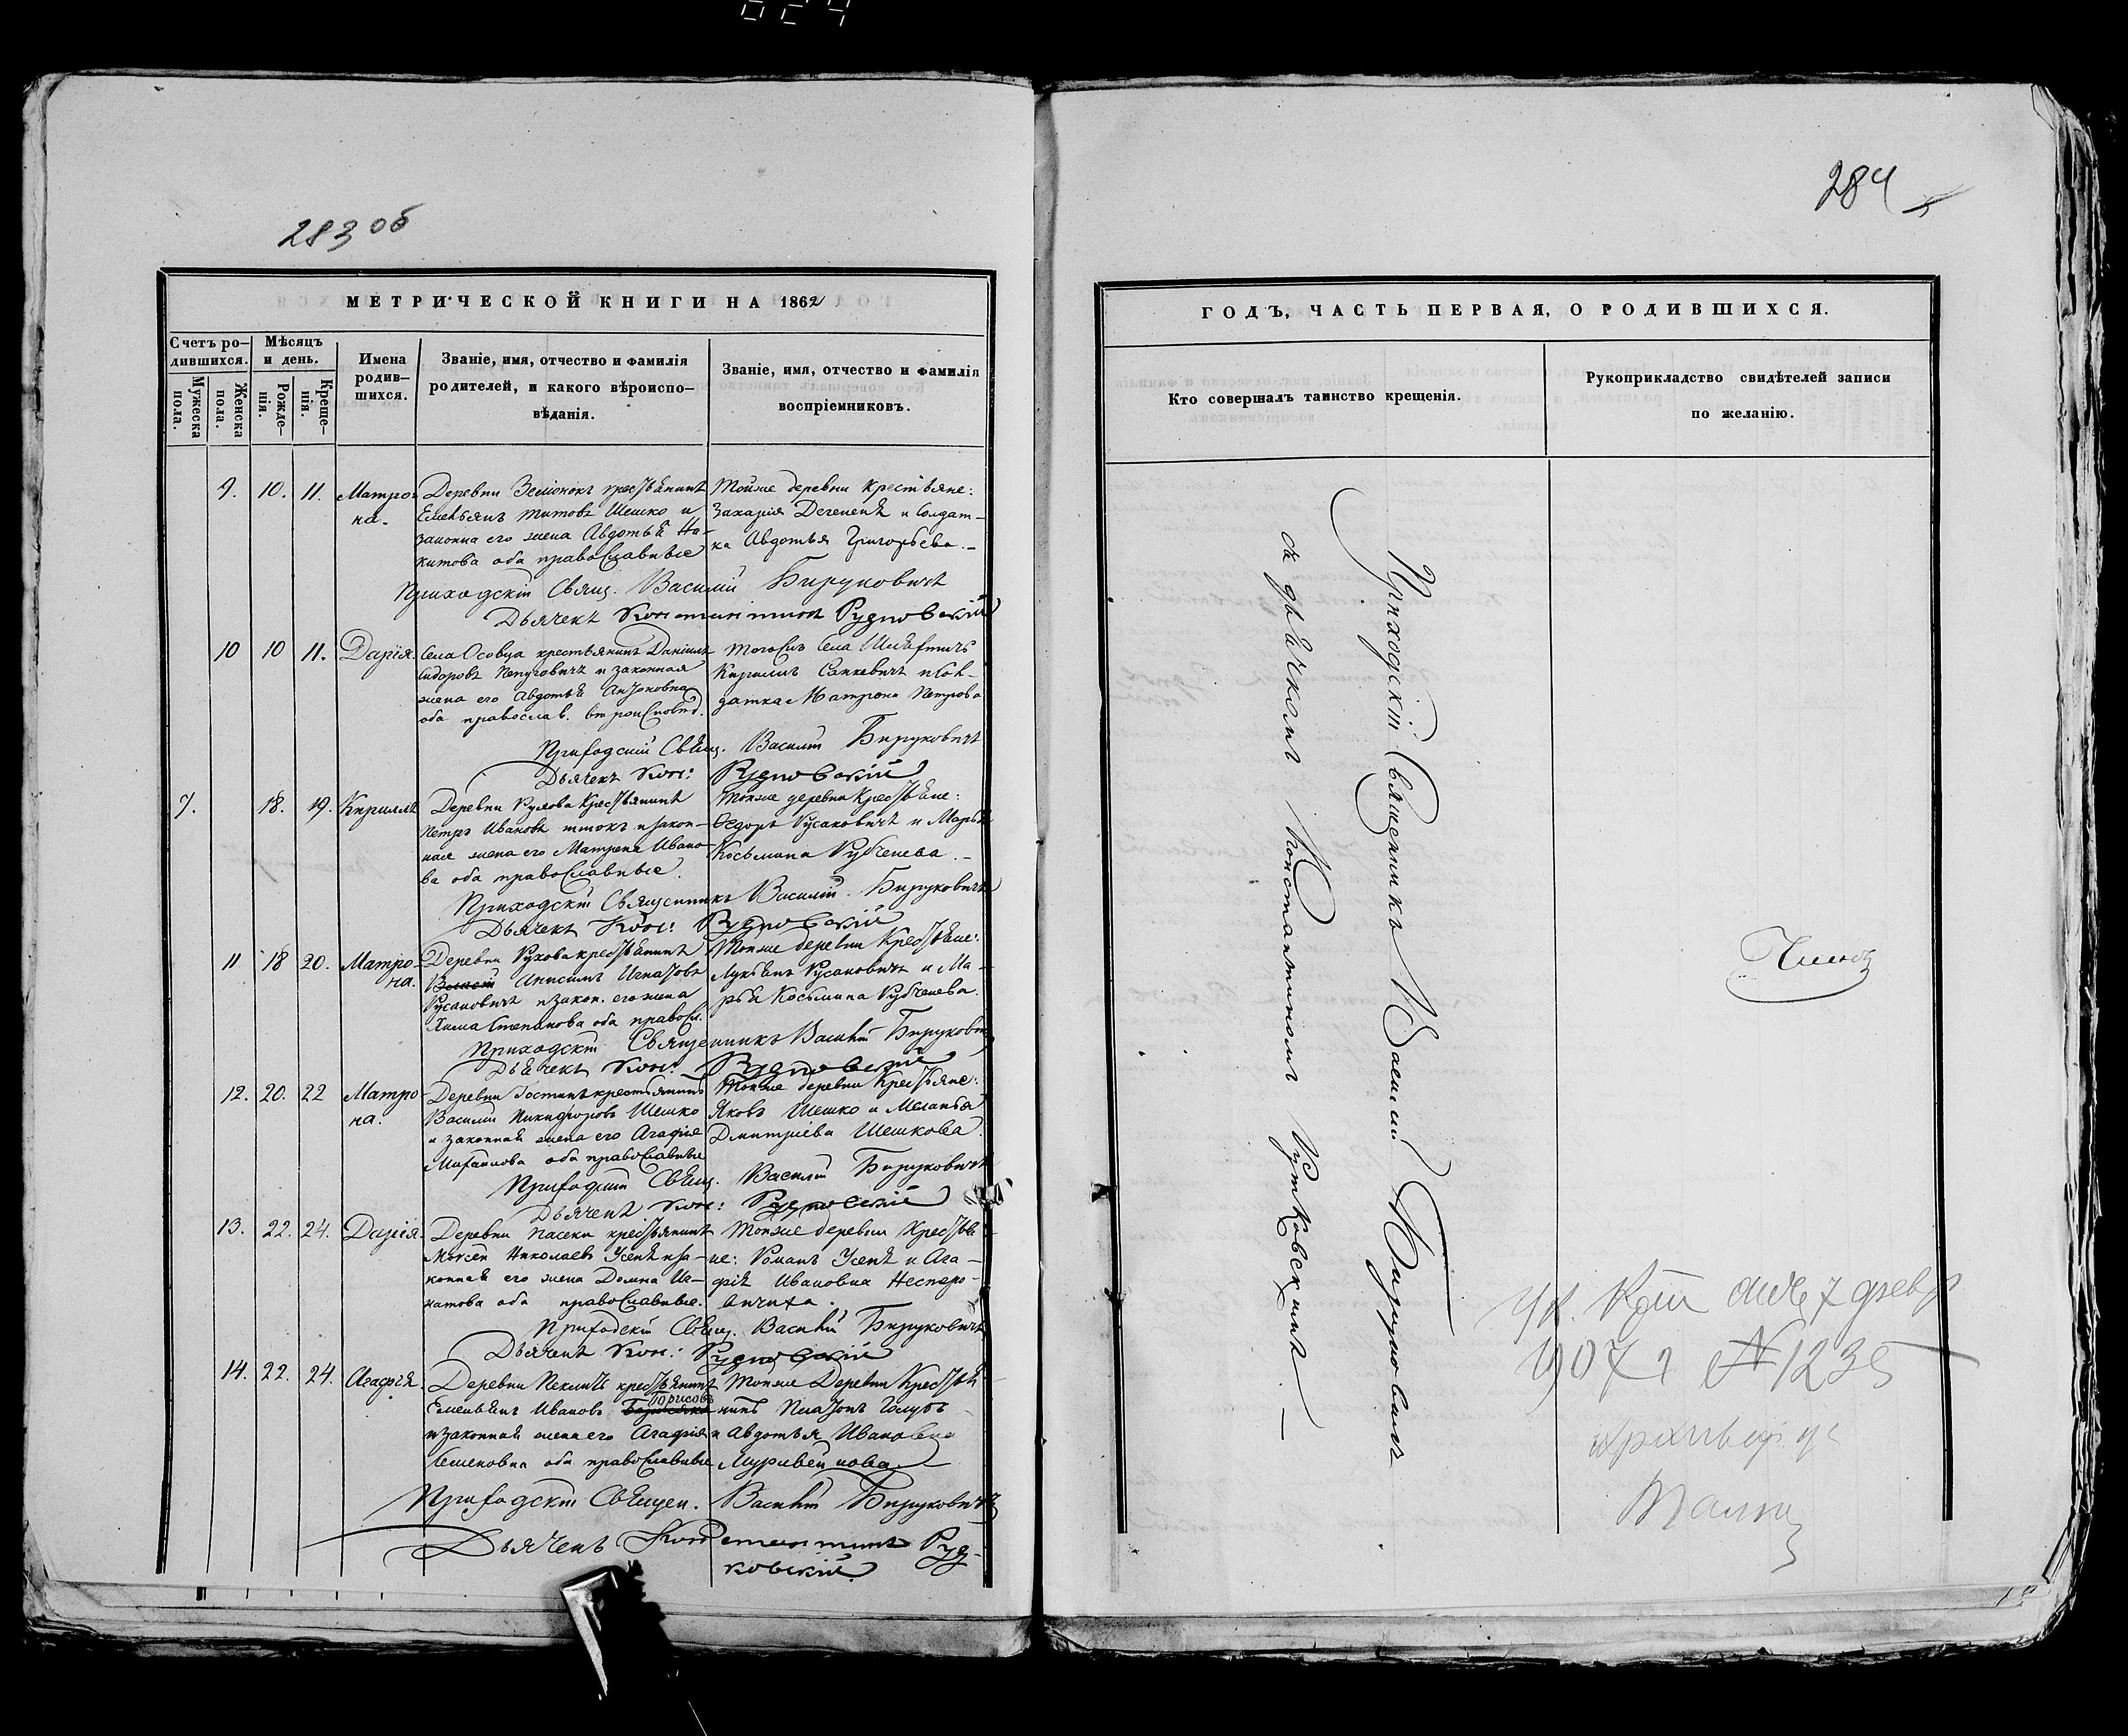 283 об
МЕТРИЧЕСКОЙ КНИГИ НА 1862
Счетъ ро-
дившихся.
Мѣсяцъ
и день.
Мужеска
пола.
Женска
пола.
Рожде-
нія.
Креще-
нія.
Имена
родив-
шихся.
Званіе, имя, отчество и фамилія
родителей, и какого вѣроиспо-
вѣданія.
Званіе, имя, отчество и фамилія
воспріемниковъ.
9. 10. 11. Матро-
на.
Деревни крестьянинъ
Емельянъ Титовъ Шешко и
законна его жена Авдотья Ни-
китова оба православные
Тойже деревни крестьяне:
Захарія и солдат-
ка Авдотья Григорьева.
Приходскій Свящ. Василій Бируковичъ
Дьячекъ Константинъ Рудковскій
10 10 11. Дарія.
Села Осовца крестьянинъ Даніилъ
Сидоровъ Пепуговичъ и законная
жена его Авдотья Антоновна
оба православ. вѣроисповѣд.
Тогожъ села
Кириллъ Санкевичъ и сол-
датка Матрона Петрова
Приходскій Свящ. Василій Бируковичъ
Дьячекъ Кон: Рудковскій
7. 18. 19. Кириллъ
Деревни крестьянинъ
Петръ Ивановъ и закон-
ная жена его Матрена Ивано-
ва оба православные.
Тойже деревни крестьяне:
Ѳедоръ Русаковичъ и Марья
Косьмина Рубченева.
Приходскій Священникъ Василій Бируковичъ
Дьячекъ Кон: Рудковскій
11 18 20. Матро-
на.
Деревни крестьянинъ
Анисимъ Игнатовъ
Русаковичъ и закон. его жена
Степанова оба правосл.
Тойже деревни крестьяне:
Лукьянъ Русаковичъ и Ма-
рья Косьмина Рубченева.
Приходскій Священникъ Василій Бируковичъ
Дьячекъ Кон: Рудковскій
12. 20. 22 Матро-
на.
Деревни крестьянинъ
Василій Никифоровъ Шешко
и законная жена его Агафія
Михайлова оба православные
Тойже деревни крестьяне:
Яковъ Шешко и Меланья
Дмитріева Шешкова.
Приходскій Свящ. Василій Бируковичъ
Дьячекъ Кон: Рудковскій
13. 22. 24. Дарія.
Деревни Пасеки крестьянинъ
Моисей Николаевъ Усеня и за-
конная его жена Домна Иг-
натова оба православные.
Тойже деревни крестья-
не: Романъ Усеня и Ага-
фія Ивановна Нестеро-
вичиха.
Приходскій Свящ. Василій Бируковичъ
Дьячекъ Кон: Рудковскій
14. 22. 24. Агафія.
Деревни крестьянинъ
Емельянъ Ивановъ Борисовъ
и законная жена его Агафія
Семеновна оба православные
Тойже деревни крестья-
нинъ Платонъ Голубъ
и Авдотья Ивановна
Приходскій Священ. Василій Бируковичъ
Дьячекъ Константинъ Руд-
ковскій.
284
ГОДЪ, ЧАСТЬ ПЕРВАЯ, О РОДИВШИХСЯ.
Кто совершалъ таинство крещенія.
Рукоприкладство свидѣтелей записи
по желанію.
Приходскій Священникъ Василій Бируковичъ
съ дьячкомъ Константиномъ Рутковскимъ.
7 февр
1907 г №1235